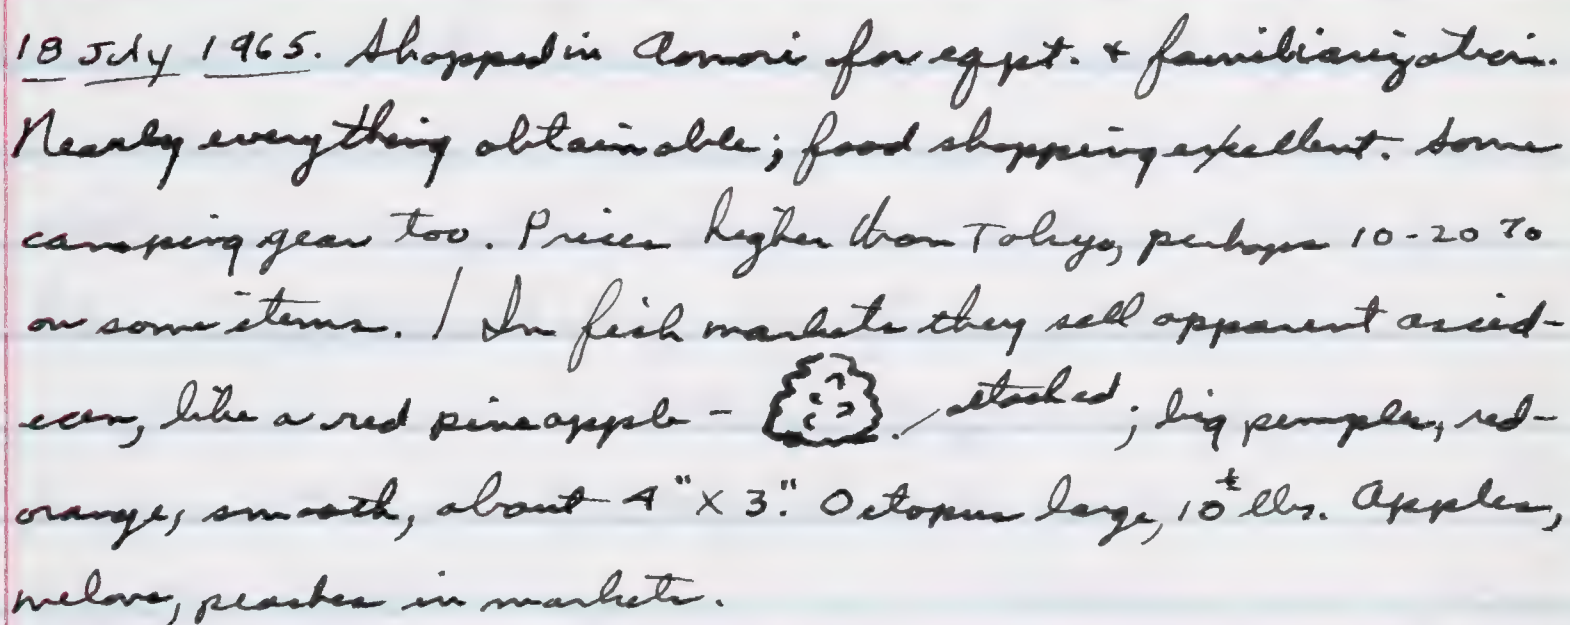 18 July 1965. Shopped in Aomori for eqpt. + familiarization.
Nearly everything obtainable; food shopping excellent. Some
camping gear too. Prices higher than Tokyo, perhaps 10-20%
on some items. / In fish markets they sell apparent ascid-
ean, like a red pineapple - attached; big pimples, red-
orange, smooth, about 4" x 3". Octopus large, 10± lbs. Apples,
melons, peaches in markets.